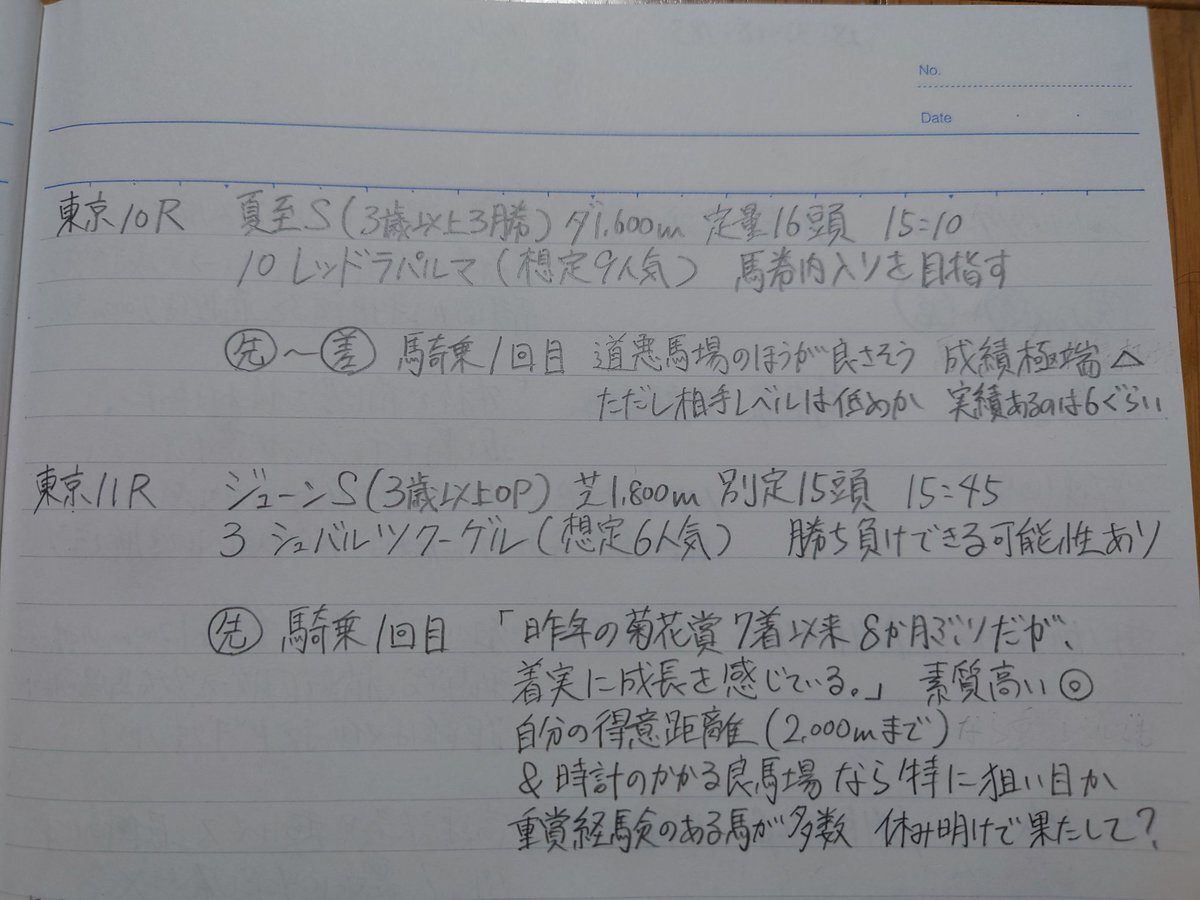 No.
Date
東京10R 夏至S(3歳以上3勝) ダ1,600m 定量16頭 15:10
10 レッドラパルマ(想定9人気) 馬券内入りを目指す
先〜差 騎乗1回目 道悪馬場のほうが良さそう 成績極端△
ただし相手レベルは低めか 実績あるのは6ぐらい
東京11R ジューンS(3歳以上OP) 芝1,800m 別定15頭 15:45
3 シュバルツクーゲル(想定6人気) 勝ち負けできる可能性あり
先 騎乗1回目 「昨年の菊花賞7着以来8か月ぶりだが、
着実に成長を感じている。」 素質高い◎
自分の得意距離(2,000mまで)
&時計のかかる良馬場なら特に狙い目か
重賞経験のある馬が多数 休み明けで果たして?